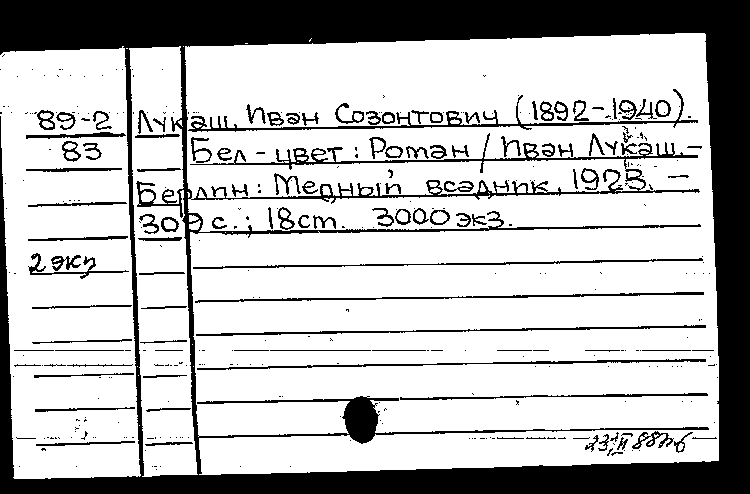 89-2 Лукаш, Иван Созонтович (1892-1940).
83 Бел-цвет: Роман / Иван Лукаш.-
Берлин: Медный всадник, 1923. -
309 с.; 18 ст. 3000 экз.
2 экз
23/II 88